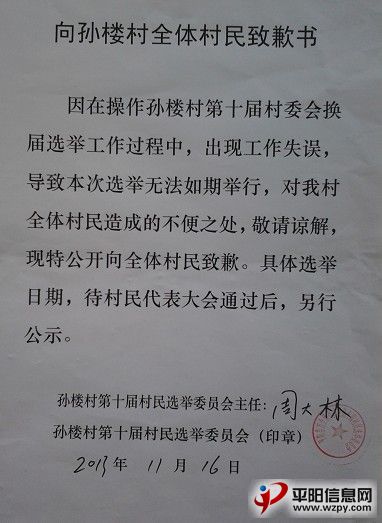 向孙楼村全体村民致歉书
因在操作孙楼村第十届村委会换
届选举工作过程中，出现工作失误，
导致本次选举无法如期举行，对我村
全体村民造成的不便之处，敬请谅解，
现特公开向全体村民致歉。具体选举
日期，待村民代表大会通过后，另行
公示。
孙楼村第十届村民选举委员会主任：周大林
孙楼村第十届村民选举委员会（印章）
2013年 11月 16日
平阳信息网
www.wzpy.com